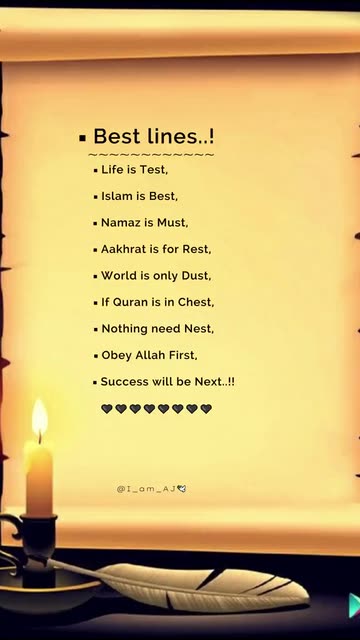 ▪ Best lines..!
~~~~~~~~~~~~
▪ Life is Test,
▪ Islam is Best,
▪ Namaz is Must,
▪ Aakhrat is for Rest,
▪ World is only Dust,
▪ If Quran is in Chest,
▪ Nothing need Nest,
▪ Obey Allah First,
▪ Success will be Next..!!
🖤🖤🖤🖤🖤🖤🖤🖤
@I_am_AJ🕊